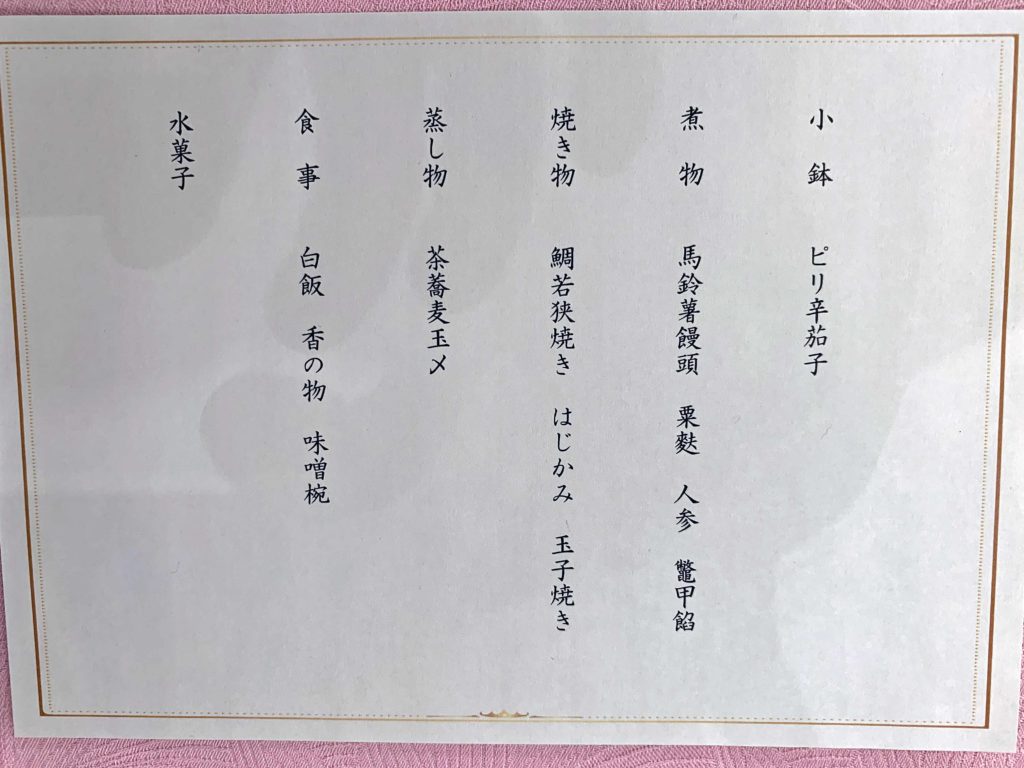 小鉢　ピリ辛茄子
煮物　馬鈴薯饅頭　粟麩　人参　鼈甲餡
焼き物　鯛若狭焼き　はじかみ　玉子焼き
蒸し物　茶蕎麦玉〆
食事　白飯　香の物　味噌椀
水菓子